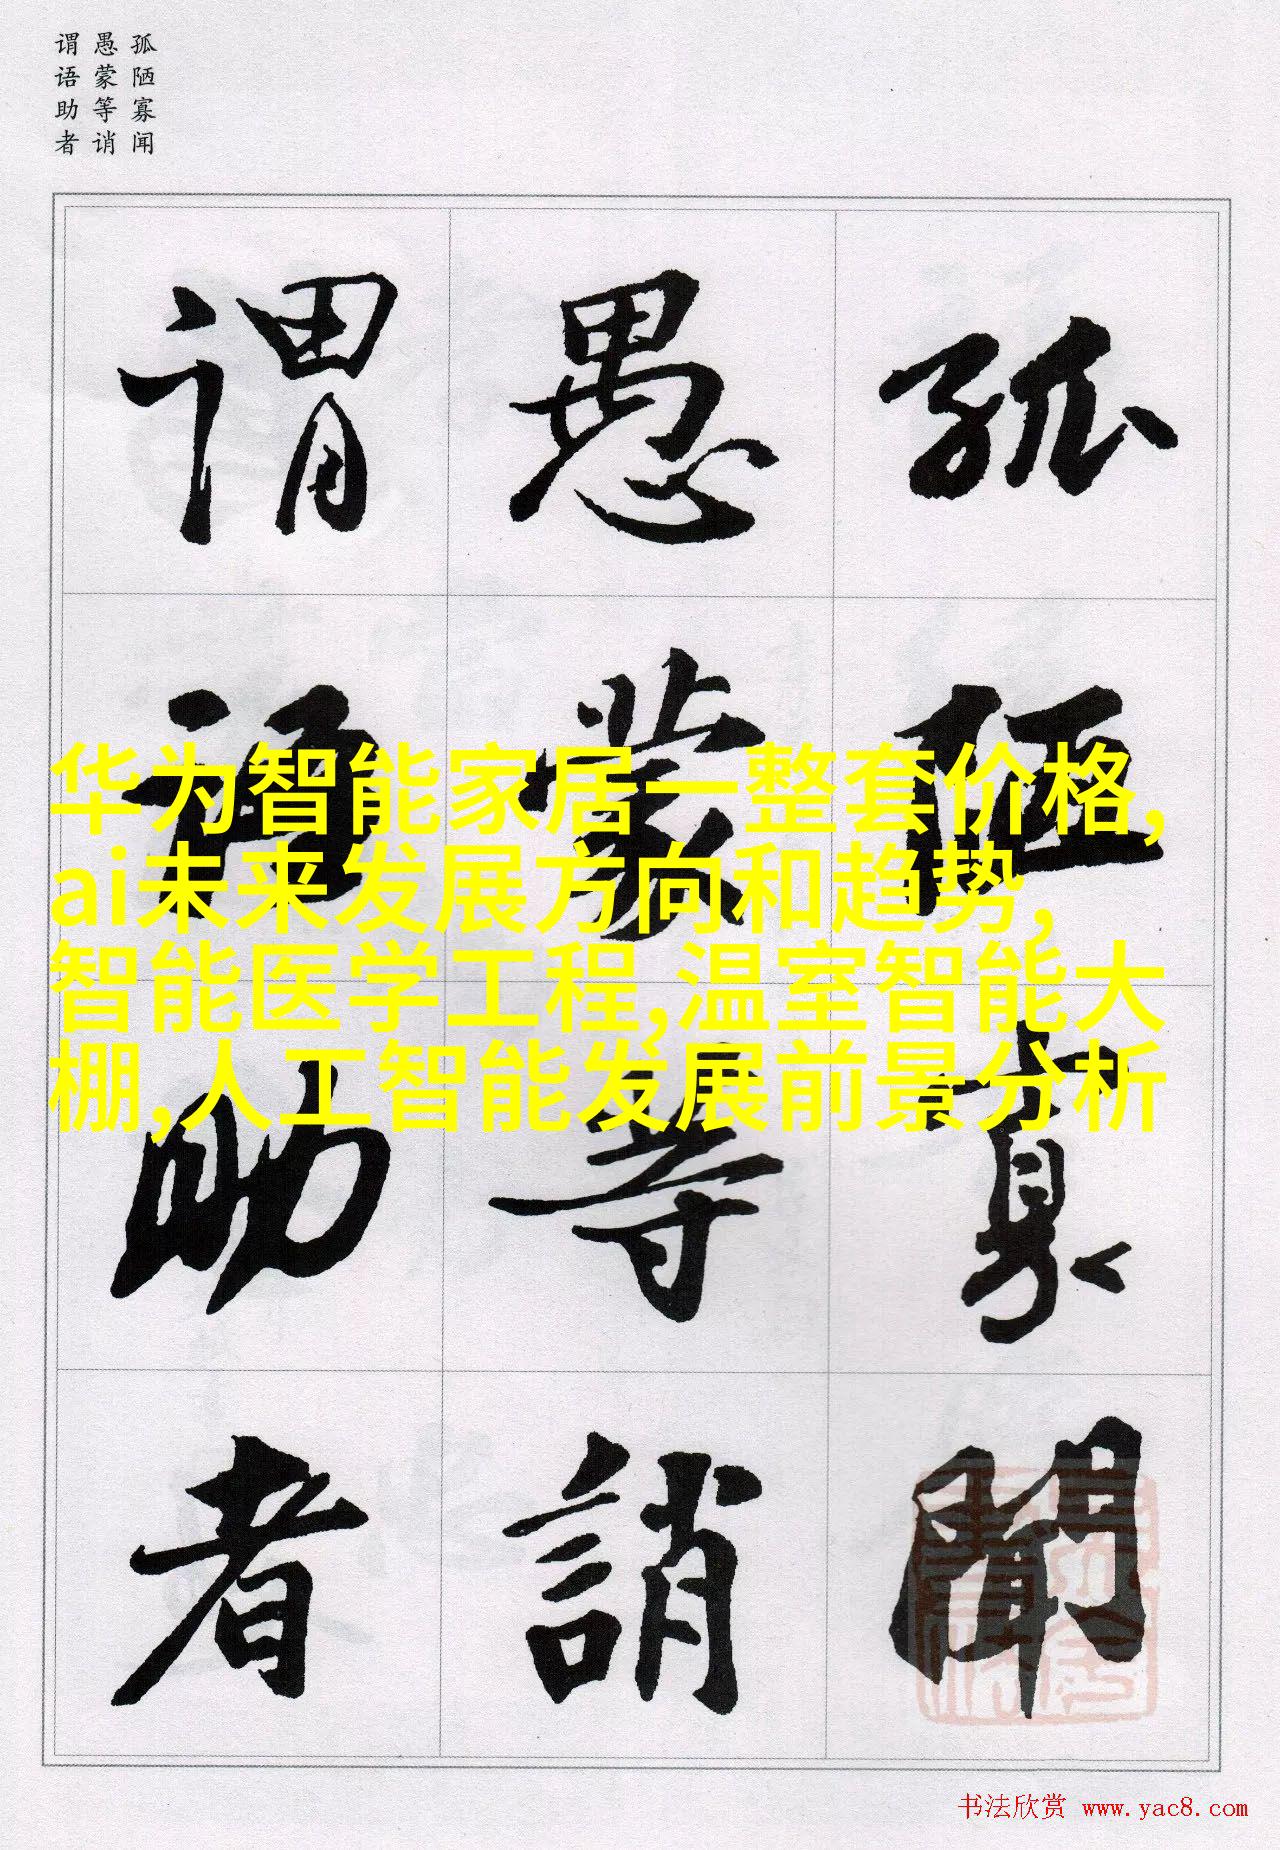 孤陋寡闻
愚蒙等诮
谓语助者
孤陋寡闻
愚蒙等誚
谓语助者
华为智能家居一整套价格,
ai未来发展方向和趋势,
智能医学工程,温室智能大
棚,人工智能发展前景分析
书法欣赏 www.yac8.com